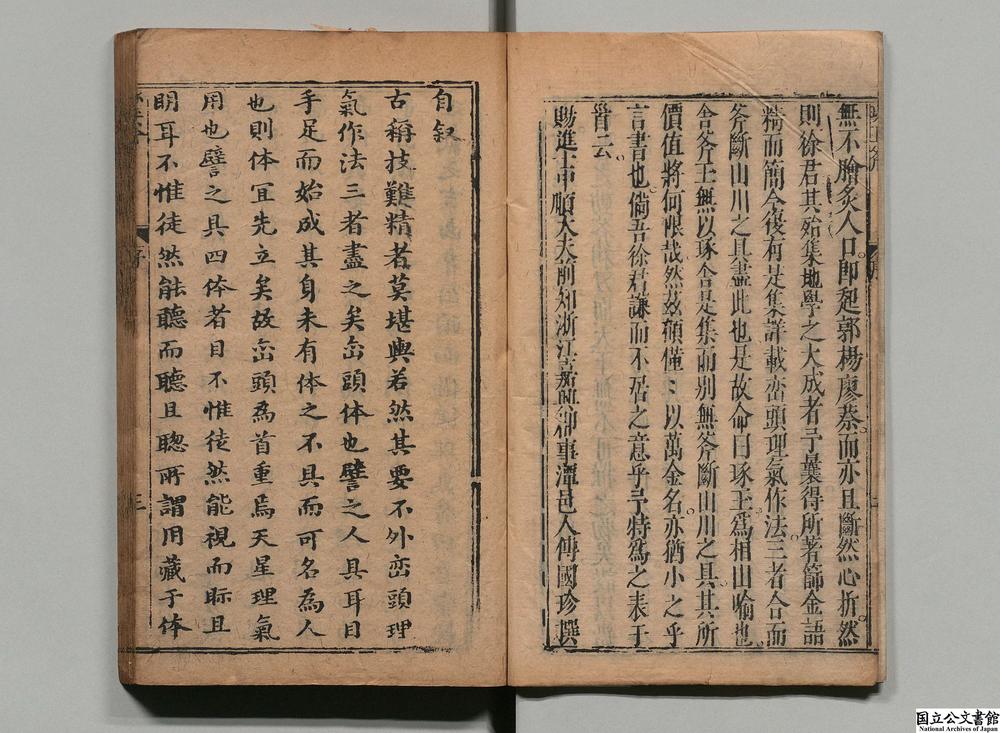 無不膾炙人口即起郭楊廖蔡而亦且斷然心折然
則徐君其始集地學之大成者乎曩得所著篩金語
精而簡今後有是集詳載巒頭理氣作法三者合而
斧斷山川之具盡此也是故命曰琢玉爲相山喻也
舍斧玉無以琢舍是集而別無斧斷山川之具其所
價值將何限哉然茲顏僅〻以萬金名亦猶小之乎
言書也倘吾徐君謙而不居之意乎予特爲之表于
首云
賜進士中順大夫前知浙江嘉興郡事潭邑人傅國珍撰
自叙
古稱技難精者莫堪輿若然其要不外巒頭理
氣作法三者盡之矣巒頭體也譬之人具耳目
手足而始成其身未有体之不具而可名為人
也則体宜先立矣故巒頭為首重焉天星理氣
用也譬之具四体者目不惟徒然能視而眎且
明耳不惟徒然能聽而聽且聰所謂用藏于体
序
三
国立公文書館
National Archives of Japan